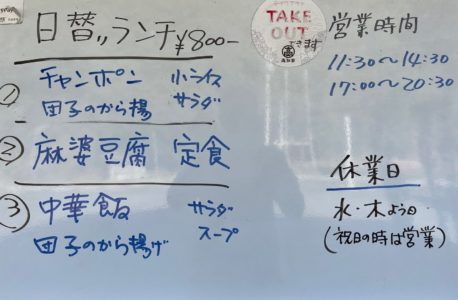 日替〃ランチ ¥800-
① チャンポン 小ライス
団子のから揚 サラダ
② 麻婆豆腐 定食
③ 中華飯 サラダ
団子のから揚げ スープ
TAKE
OUT
できます
営業時間
11:30〜14:30
17:00〜20:30
休業日
水・木よう日
(祝日の時は営業)